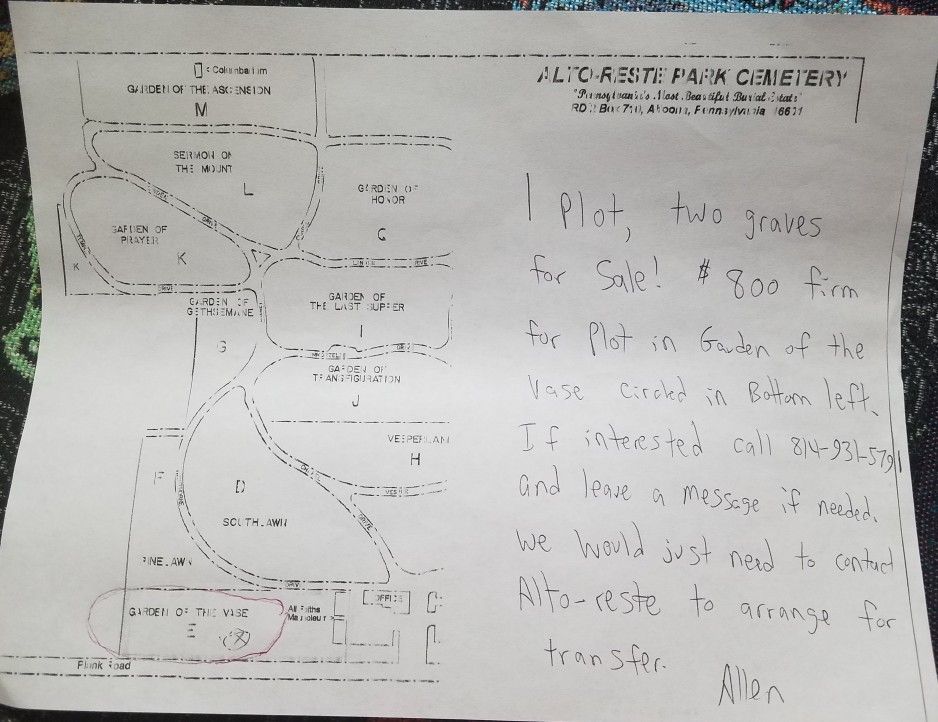 Columbarium
GARDEN OF THE ASCENSION
M
SERMON ON
THE MOUNT
L
GARDEN OF
HONOR
C
GARDEN OF
PRAYER
K
K
DRIVE
GARDEN OF
GETHSEMANE
G
GARDEN OF
THE LAST SUPPER
I
GARDEN OF
TRANSFIGURATION
J
VESPERLAWN
H
F
D
SOUTHLAWN
PINELAWN
DRIVE
OFFICE
GARDEN OF THE VASE
E
All Faiths
Mausoleum
Plank Road
ALTO-RESTE PARK CEMETERY
"Pennsylvania's Most Beautiful Burial Estate"
Altoona, Pennsylvania 16601
1 Plot, two graves
for Sale! $800 firm
for Plot in Garden of the
Vase circled in Bottom left.
If interested call 814-931-5791
and leave a message if needed.
We would just need to contact
Alto-reste to arrange for
transfer.
Allen